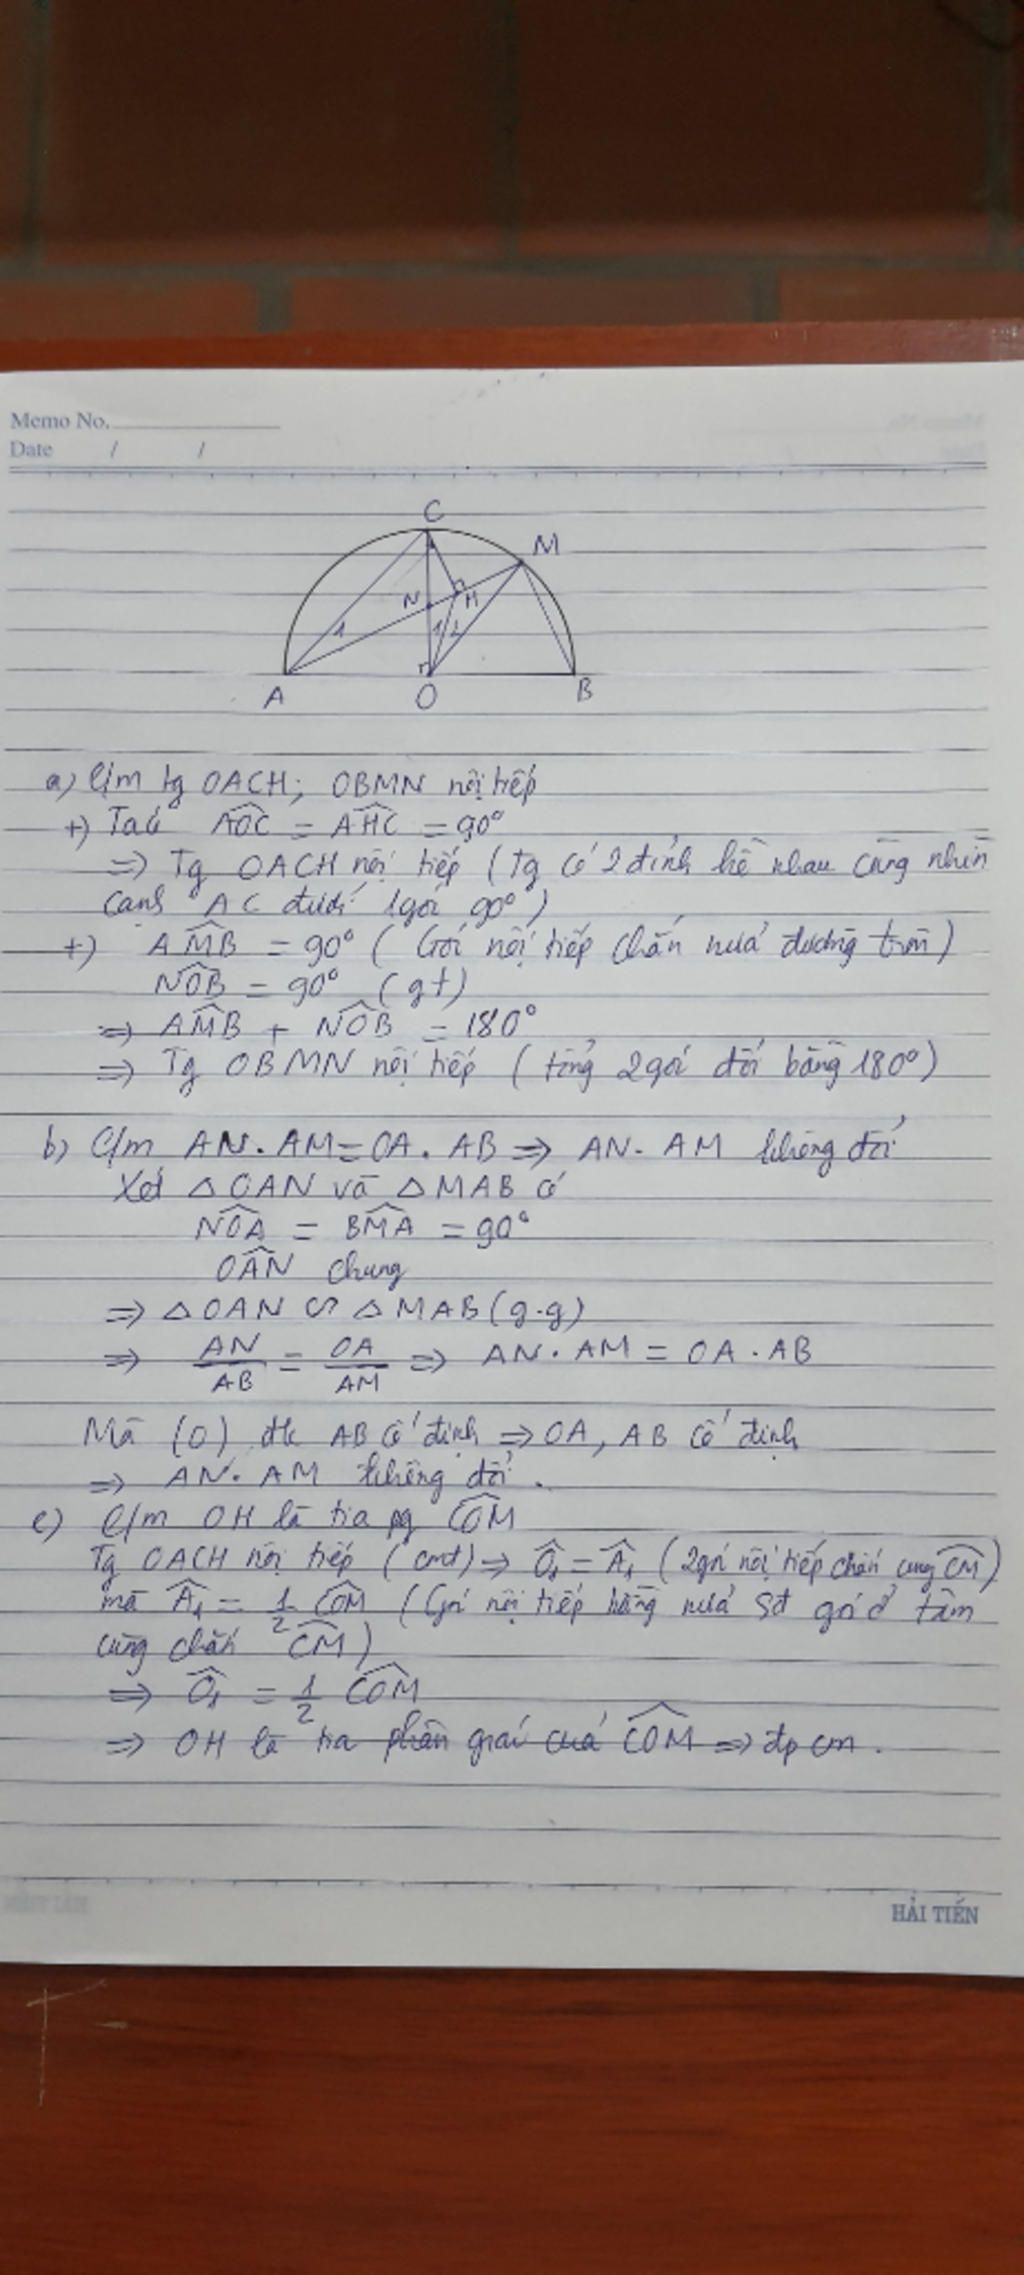 Memo No.
Date / /
C
M
N H
1 1 2
A O B
a) C/m tg OACH; OBMN nội tiếp
+) Ta có AOC = AHC = 90°
=> Tg OACH nội tiếp (Tg có 2 đỉnh kề nhau cùng nhìn
cạnh AC dưới 1 góc 90°)
+) AMB = 90° (Góc nội tiếp chắn nửa đường tròn)
NOB = 90° (gt)
=> AMB + NOB = 180°
=> Tg OBMN nội tiếp (tổng 2 góc đối bằng 180°)
b) C/m AN . AM = OA . AB => AN . AM không đổi
Xét △ OAN và △ MAB có
NOA = BMA = 90°
OAN chung
=> △ OAN ∽ △ MAB (g.g)
=> AN/AB = OA/AM => AN . AM = OA . AB
Mà (O) đk AB cố định => OA, AB cố định
=> AN . AM không đổi .
c) C/m OH là tia pg COM
Tg OACH nội tiếp (cmt) => O1 = A1 (2 góc nội tiếp chắn cung CM)
mà A1 = 1/2 COM (Góc nội tiếp bằng nửa sđ góc ở tâm
cùng chắn CM)
=> O1 = 1/2 COM
=> OH là tia phân giác của COM => đpcm .
HẢI TIẾN